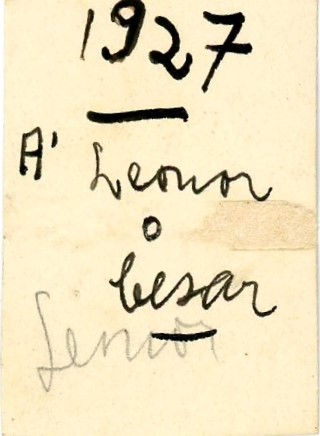 1927
A' Leonor
o
Cesar
Leonor